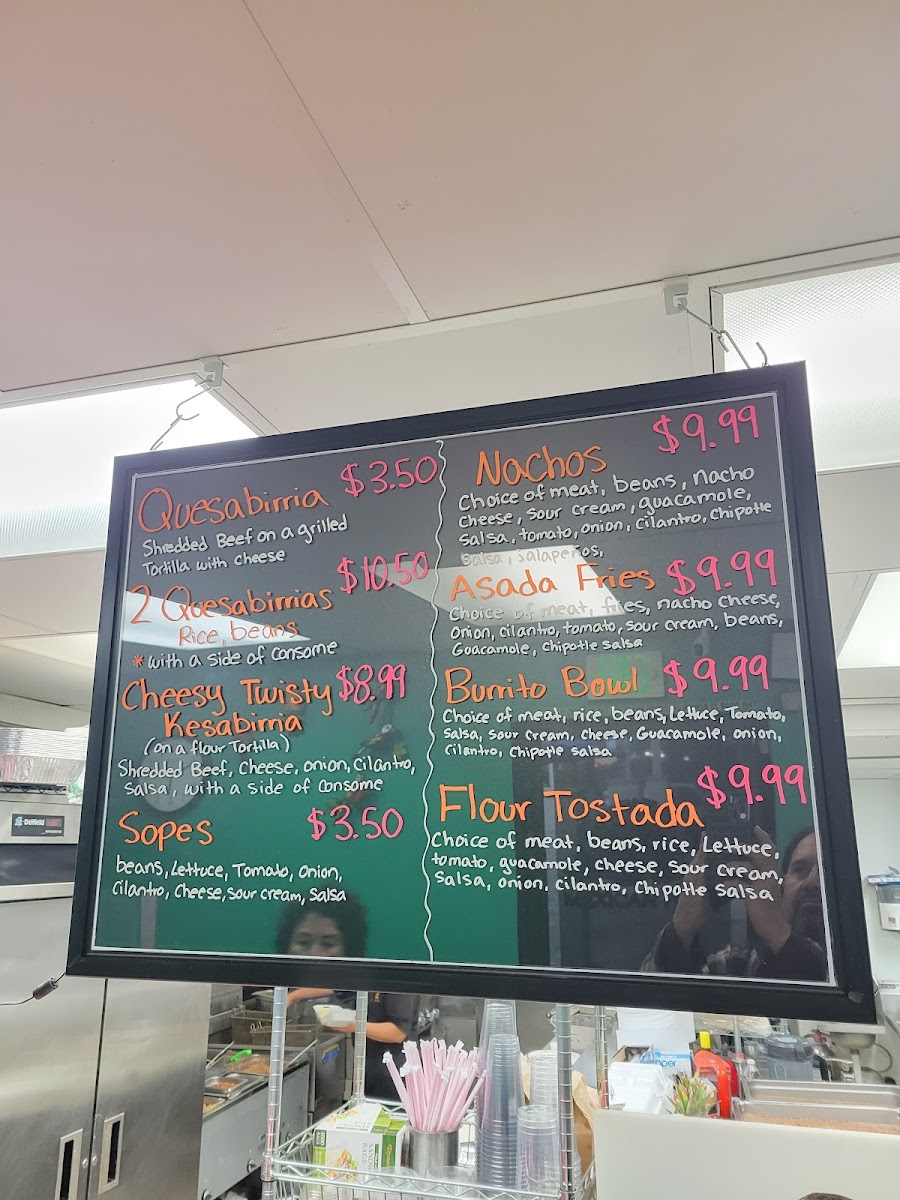 Quesabirria $3.50
Shredded Beef on a grilled
Tortilla with cheese
2 Quesabirrias $10.50
Rice, beans
*with a side of consome
Cheesy Twisty $8.99
Kesabirria
(on a flour Tortilla)
Shredded Beef, Cheese, onion, Cilantro,
Salsa, with a side of consome
Sopes $3.50
beans, Lettuce, Tomato, Onion,
Cilantro, Cheese, sour cream, Salsa
Nachos $9.99
Choice of meat, beans, Nacho
Cheese, sour cream, guacamole,
Salsa, tomato, onion, cilantro, chipotle
Salsa, jalapeños,
Asada Fries $9.99
Choice of meat, fries, nacho cheese,
Onion, cilantro, tomato, sour cream, beans,
Guacamole, Chipotle salsa
Burrito Bowl $9.99
Choice of meat, rice, beans, Lettuce, Tomato,
Salsa, sour cream, cheese, Guacamole, onion,
Cilantro, Chipotle salsa
Flour Tostada $9.99
Choice of meat, beans, rice, Lettuce,
tomato, guacamole, cheese, sour cream,
Salsa, onion, cilantro, Chipotle Salsa
Delfield